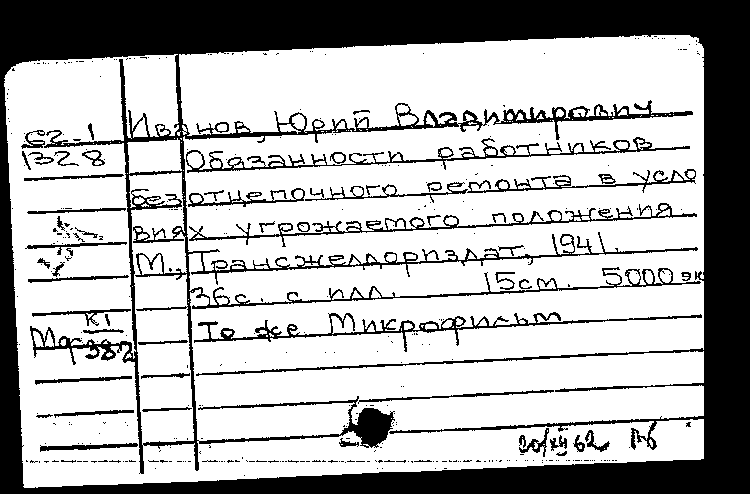 Иванов, Юрий Владимирович
С2-1
1328
Обязанности работников
безотцепочного ремонта в усло
виях угрожаемого положения.
М., Трансжелдориздат, 1941.
36с. с илл. 15см. 5000 эк
То же Микрофильм
К1
382
20/XII 62